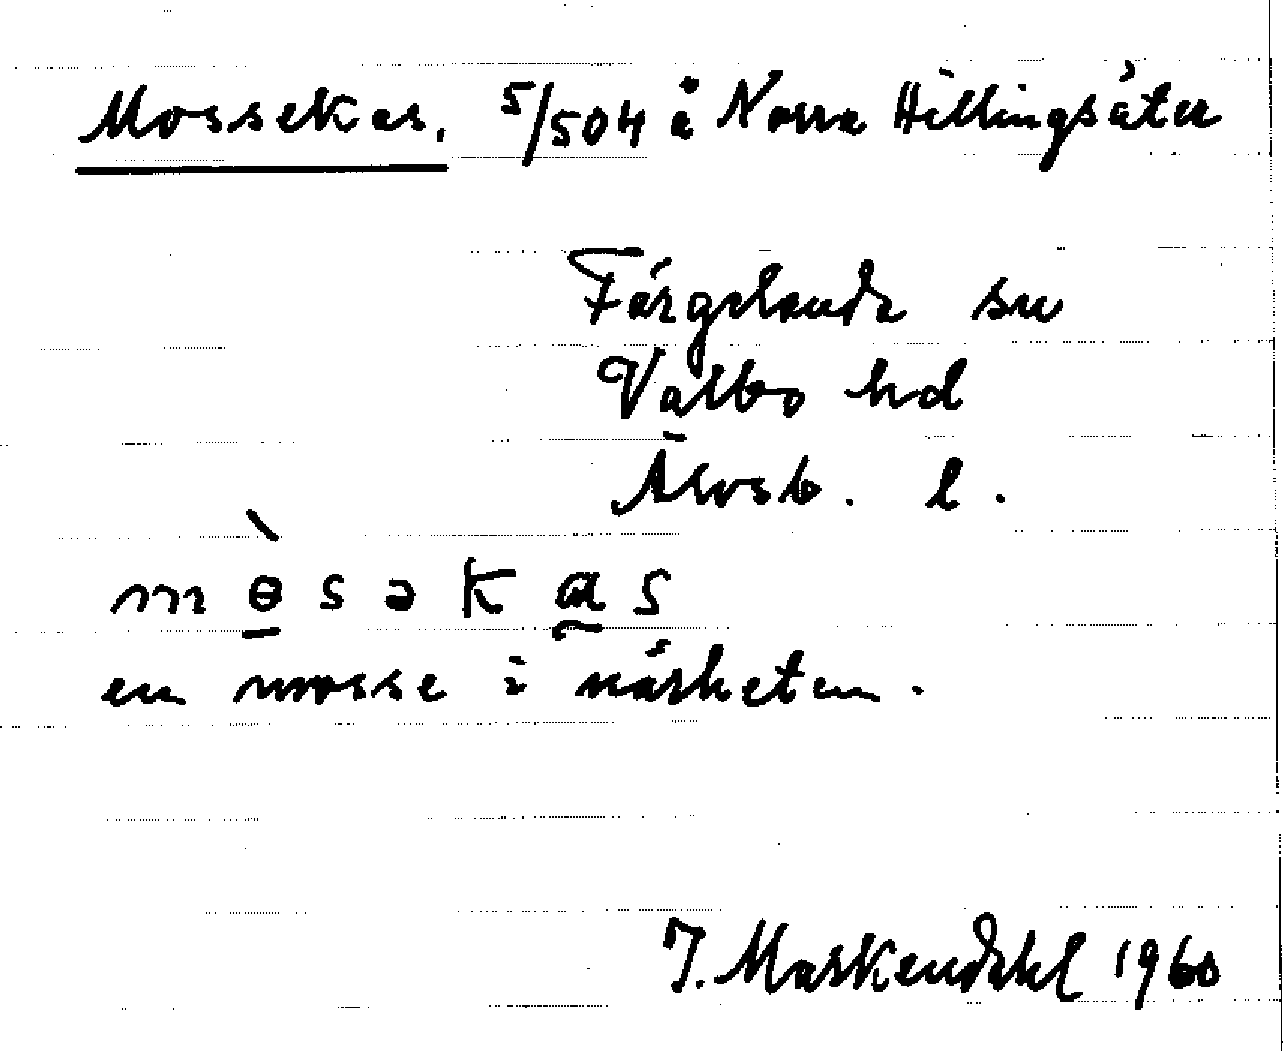 Mossekas. 5/504 å Norra Hillingsäter
Färgelanda sn
Valbo hd
Älvsb. l.
mɵ̀səkas
en mosse i närheten.
J. Markendahl 1960